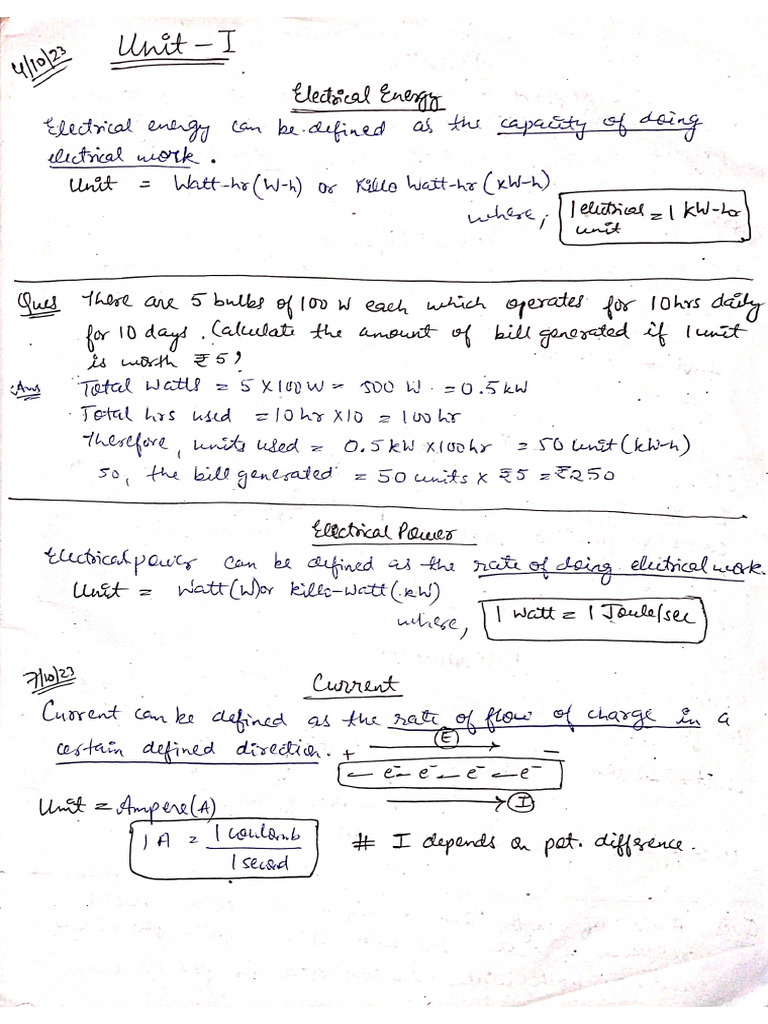 4/10/23
Unit - I
Electrical Energy
Electrical energy can be defined as the capacity of doing
electrical work.
Unit = Watt-hr (W-h) or Killo Watt-hr (kW-h)
where, 1 electrical unit = 1 kW-hr
Ques There are 5 bulbs of 100 W each which operates for 10 hrs daily
for 10 days. Calculate the amount of bill generated if 1 unit
is worth ₹5?
Ans Total Watts = 5 × 100 W = 500 W = 0.5 kW
Total hrs used = 10 hr × 10 = 100 hr
Therefore, units used = 0.5 kW × 100 hr = 50 unit (kW-h)
So, the bill generated = 50 units × ₹5 = ₹250
Electrical Power
Electrical power can be defined as the rate of doing electrical work.
Unit = Watt (W) or Killo-Watt (kW)
where, 1 Watt = 1 Joule/sec
7/10/23
Current
Current can be defined as the rate of flow of charge in a
certain defined direction.
E
+ −
← e⁻ ← e⁻ ← e⁻ ← e⁻
I
Unit = Ampere (A)
1 A = 1 coulomb / 1 second
# I depends on pot. difference.